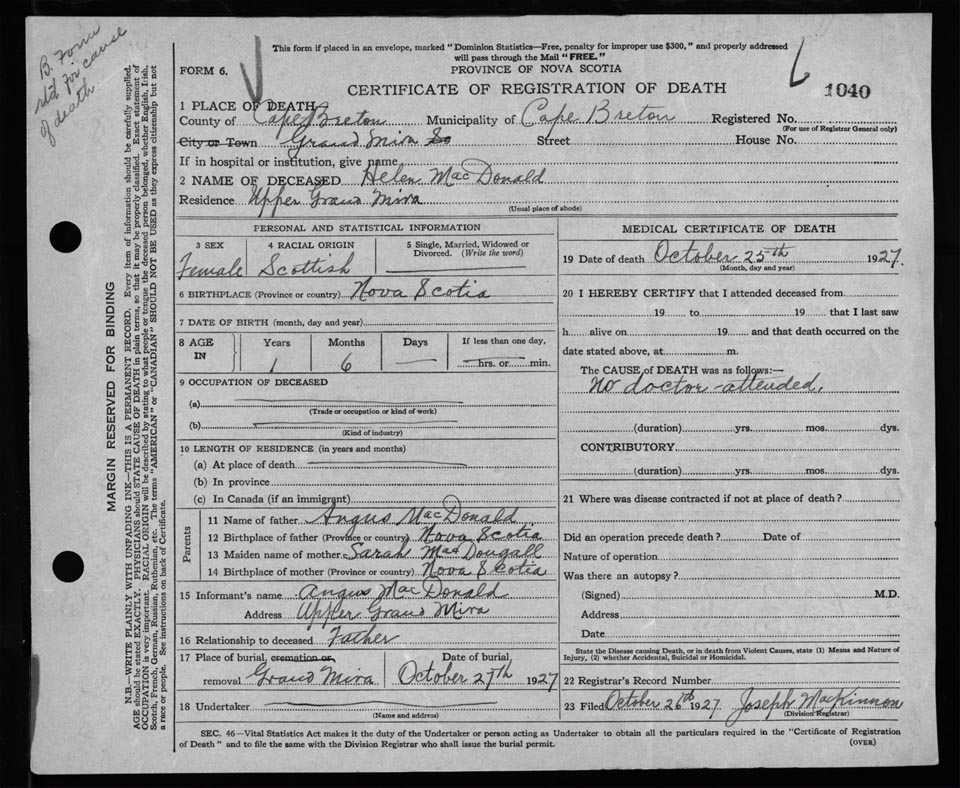 B. Form
rtd for cause
of death
This form if placed in an envelope, marked "Dominion Statistics—Free, penalty for improper use $300," and properly addressed
will pass through the Mail "FREE."
FORM 6.
PROVINCE OF NOVA SCOTIA
CERTIFICATE OF REGISTRATION OF DEATH
1040
1 PLACE OF DEATH
County of Cape Breton Municipality of Cape Breton Registered No.
(For use of Registrar General only)
City or Town Grand Mira So Street House No.
If in hospital or institution, give name
2 NAME OF DECEASED Helen MacDonald
Residence Upper Grand Mira
(Usual place of abode)
MARGIN RESERVED FOR BINDING
N.B.—WRITE PLAINLY WITH UNFADING INK—THIS IS A PERMANENT RECORD. Every item of information should be carefully supplied.
AGE should be stated EXACTLY. PHYSICIANS should STATE CAUSE OF DEATH in plain terms, so that it may be properly classified. Exact statement of
OCCUPATION is very important. RACIAL ORIGIN will be described by stating to what people or tongue the deceased person belonged, whether English, Irish,
Scotch, French, German, Russian, Ruthenian, etc. The terms "AMERICAN" or "CANADIAN" SHOULD NOT BE USED as they express citizenship but not
a race or people. See instructions on back of Certificate.
PERSONAL AND STATISTICAL INFORMATION
3 SEX 4 RACIAL ORIGIN 5 Single, Married, Widowed or
Divorced. (Write the word)
Female Scottish
6 BIRTHPLACE (Province or country) Nova Scotia
7 DATE OF BIRTH (month, day and year)
8 AGE IN Years Months Days If less than one day,
1 6 — hrs. or min.
9 OCCUPATION OF DECEASED
(a)
(Trade or occupation or kind of work)
(b)
(Kind of industry)
10 LENGTH OF RESIDENCE (in years and months)
(a) At place of death
(b) In province
(c) In Canada (if an immigrant)
Parents
11 Name of father Angus MacDonald
12 Birthplace of father (Province or country) Nova Scotia
13 Maiden name of mother Sarah MacDougall
14 Birthplace of mother (Province or country) Nova Scotia
15 Informant's name Angus MacDonald
Address Upper Grand Mira
16 Relationship to deceased Father
17 Place of burial, cremation or Date of burial
removal Grand Mira October 27th 1927
18 Undertaker
(Name and address)
MEDICAL CERTIFICATE OF DEATH
19 Date of death October 25th 1927.
(Month, day and year)
20 I HEREBY CERTIFY that I attended deceased from
19 to 19 that I last saw
h alive on 19 and that death occurred on the
date stated above, at m.
The CAUSE of DEATH was as follows:—
No doctor attended.
(duration) yrs. mos. dys.
CONTRIBUTORY
(duration) yrs. mos. dys.
21 Where was disease contracted if not at place of death?
Did an operation precede death? Date of
Nature of operation
Was there an autopsy?
(Signed) M.D.
Address
Date
State the Disease causing Death, or in death from Violent Causes, state (1) Means and Nature of
Injury, (2) whether Accidental, Suicidal or Homicidal.
22 Registrar's Record Number
23 Filed October 26th 1927. Joseph MacKinnon
(Division Registrar)
SEC. 46—Vital Statistics Act makes it the duty of the Undertaker or person acting as Undertaker to obtain all the particulars required in the "Certificate of Registration
of Death" and to file the same with the Division Registrar who shall issue the burial permit.
(OVER)